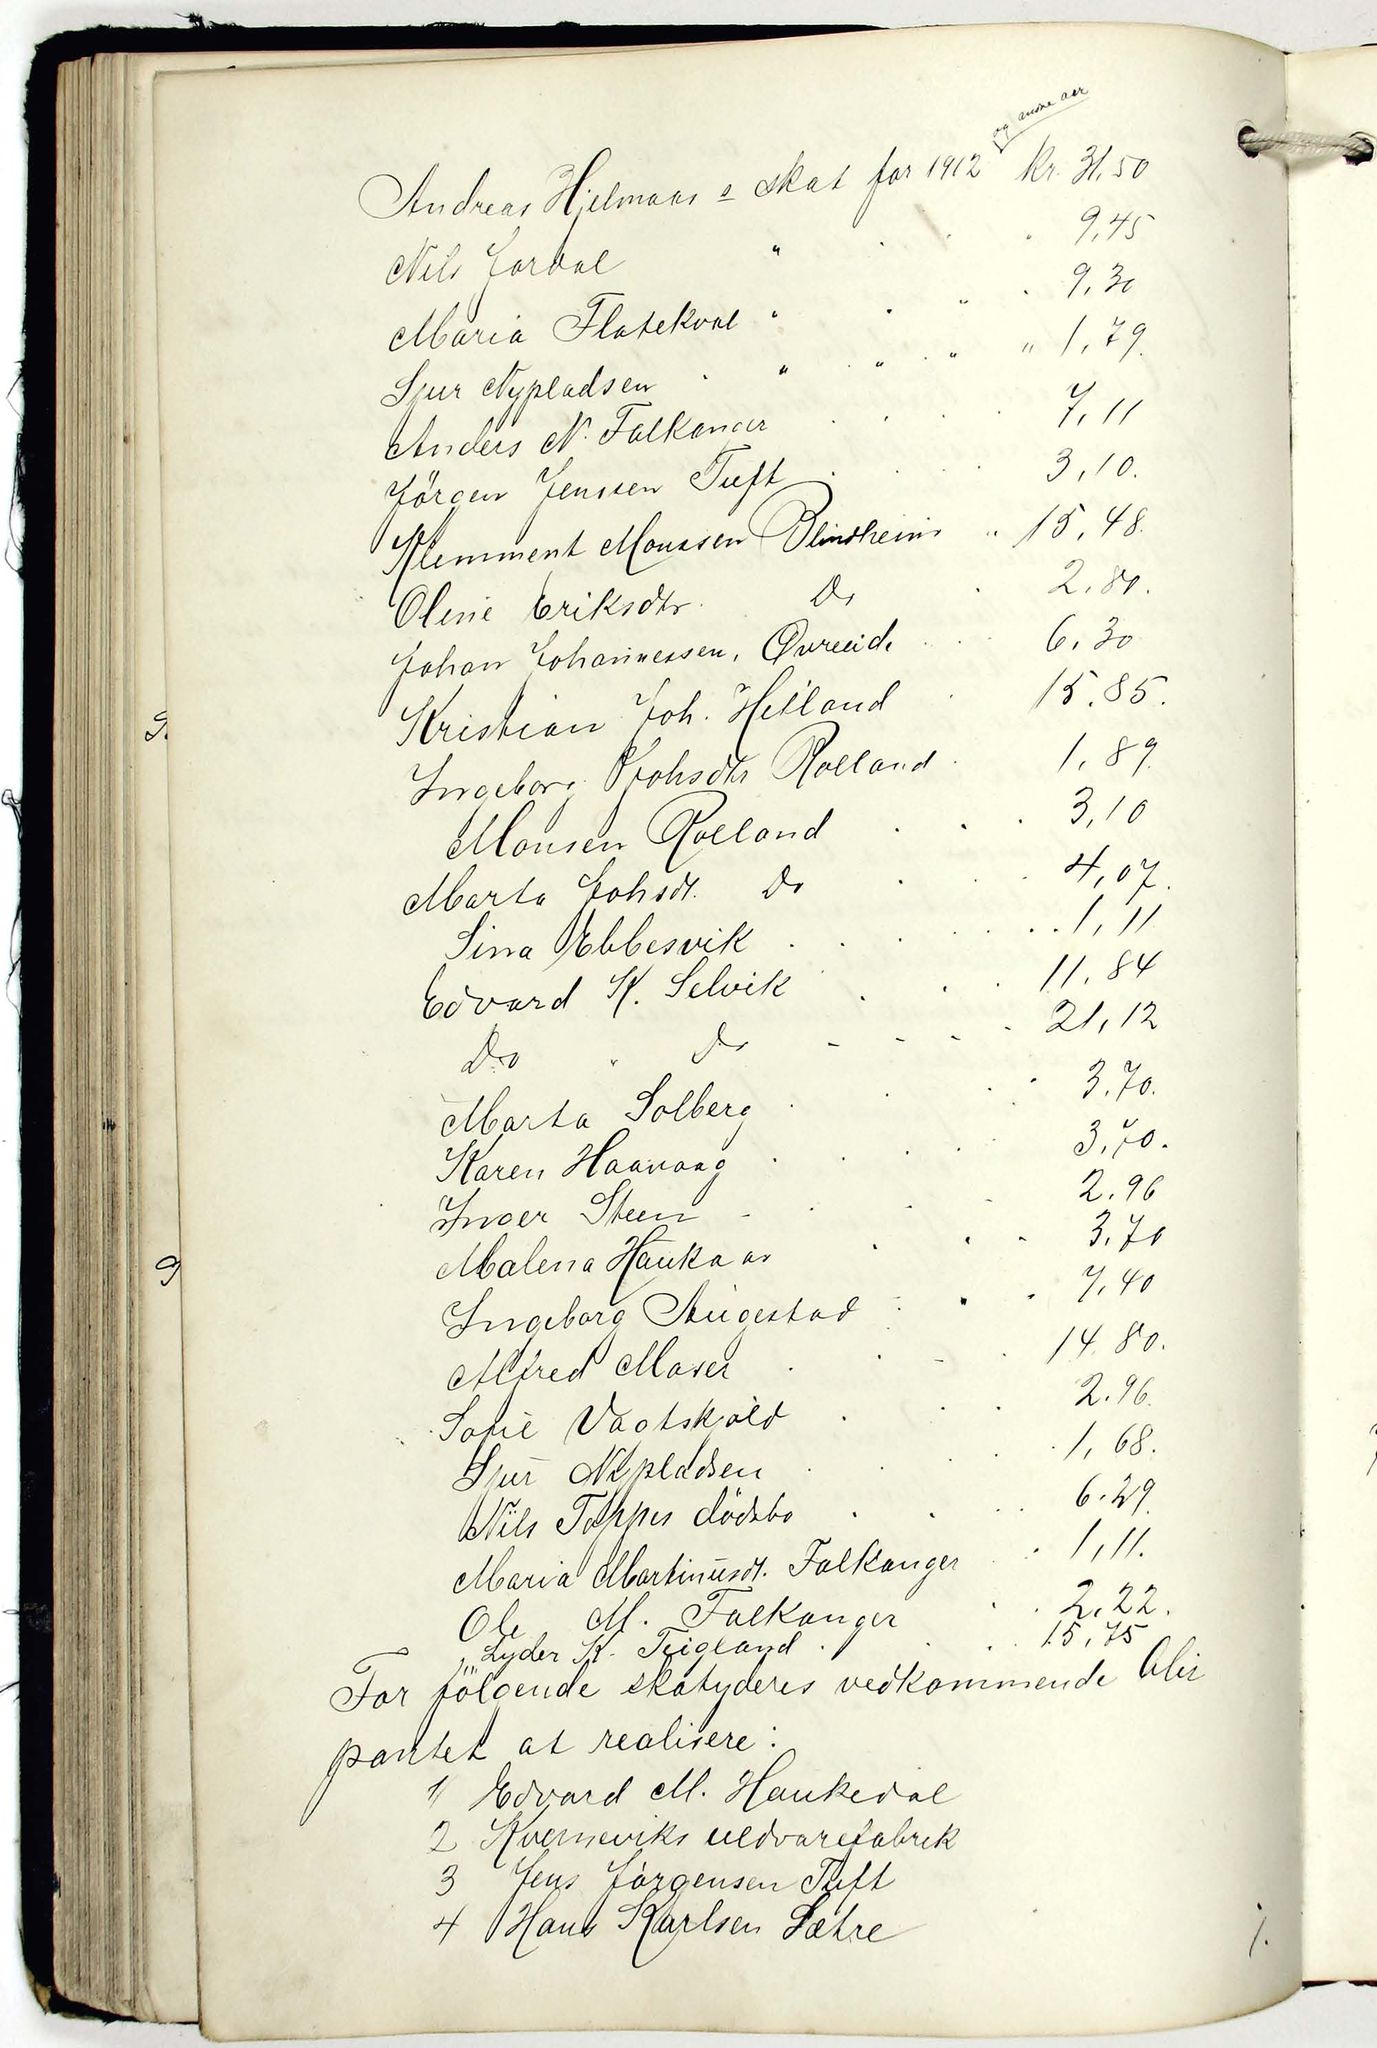 og andre aar
Andreas Hjelmaas s skat for 1912 kr. 31,50
Nils Jordal " . . . 9,45
Maria Flatekval " . " . 9,30
Sjur Nypladsen . " " . " " 1,79.
Anders N. Falkanger . . . . 7,11
Jörgen Jenssen Tuft . . . . 3,10.
Klemment Monssen Blindheim " 15,48.
Oline Eriksdtr. Do . 2,80.
Johan Johannessen, Øvreeide . . 6,30
Kristian Joh. Hetland . 15,85.
Ingeborg Johsdtr Rolland . 1,89.
Monsen Rolland . . . 3,10
Marta Johsdt. Do . . . 4,07.
Sina Ebbesvik . . . . . . 1,11
Edvard K. Selvik . . . 11,84
Do " Do - - - - 21,12
Marta Solberg . . . . 3,70.
Karen Haavaag . . . . 3,70.
Inger Steen - . . - 2.96
Malena Haukaas . . - 3,70
Ingeborg Augestad - . . 7,40
Alfred Moser . . - . 14.80.
Sofie Vagtskjold . . . 2.96.
Sjur Nypladsen . . . . 1,68.
Nils Toppes dödsbo . . . 6.29.
Maria Martinusdt. Falkanger . . 1,11.
Ole M. Falkanger . . 2,22.
Lyder K. Teigland . . . 15,75
For fölgende skatyderes vedkommende blir
pantet at realisere:
1 Edvard M. Haukedal
2 Kverneviks uldvarefabrik
3 Jens Jörgensen Tuft
4 Hans Karlsen Sætre